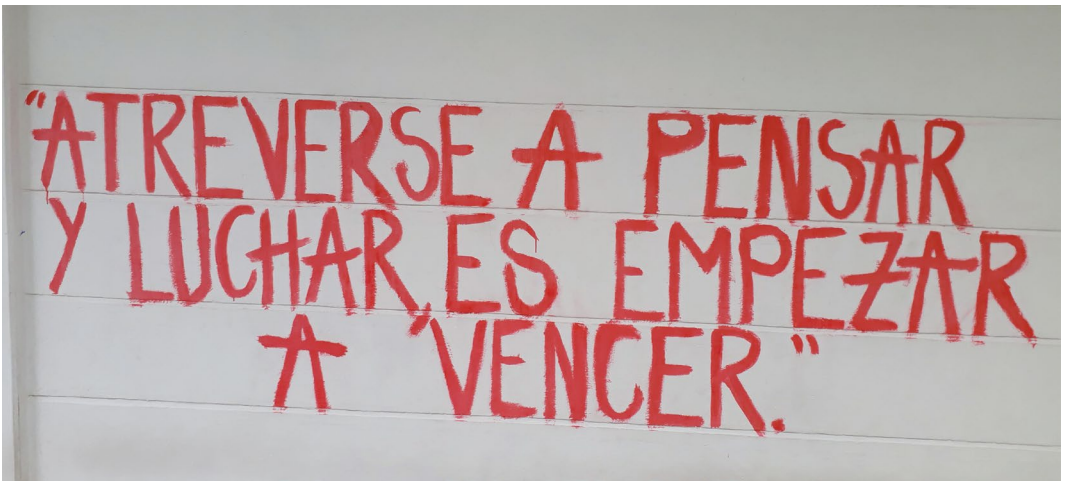 "ATREVERSE A PENSAR
Y LUCHAR, ES EMPEZAR
A "VENCER."